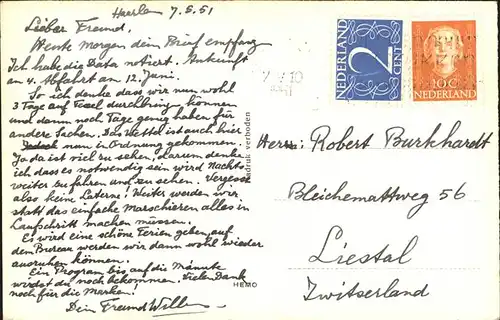 Haarlem 7.5.51
Lieber Freund,
Heute Morgen dein Brief empfang
Ich habe die Data notiert. Ankunft
am 4. Abfahrt am 12 Juni.
So ich denke dass wir nun wohl
3 Tage auf Texel durchbring-können
und dann noch Tage genug haben für
andere Sachen. Das Wetter ist auch hier
nun in Ordnung gekommen.
Ja da ist viel zu sehen, darum denke
ich dass es notwendig sein wird Nachts
weiter zu fahren und zu sehen. Vergesse
also keine Laterne! Weiter werden wir
statt das einfache Marschieren alles in
Laufschritt machen müssen.
Es wird eine schöne Ferien geben, auf
den Bureau werden wir dann wohl wieder
ausruhen können.
Ein Program bis auf die Minute
wirdst du noch bekommen. Vielen Dank
noch für die Marken!
Dein Freund Willem
HEMO
druk verboden
NEDERLAND
2
CENT
10 C
NEDERLAND
Herrn: Robert Burkhardt
Bleichemattweg 56
Liestal
Zwitserland